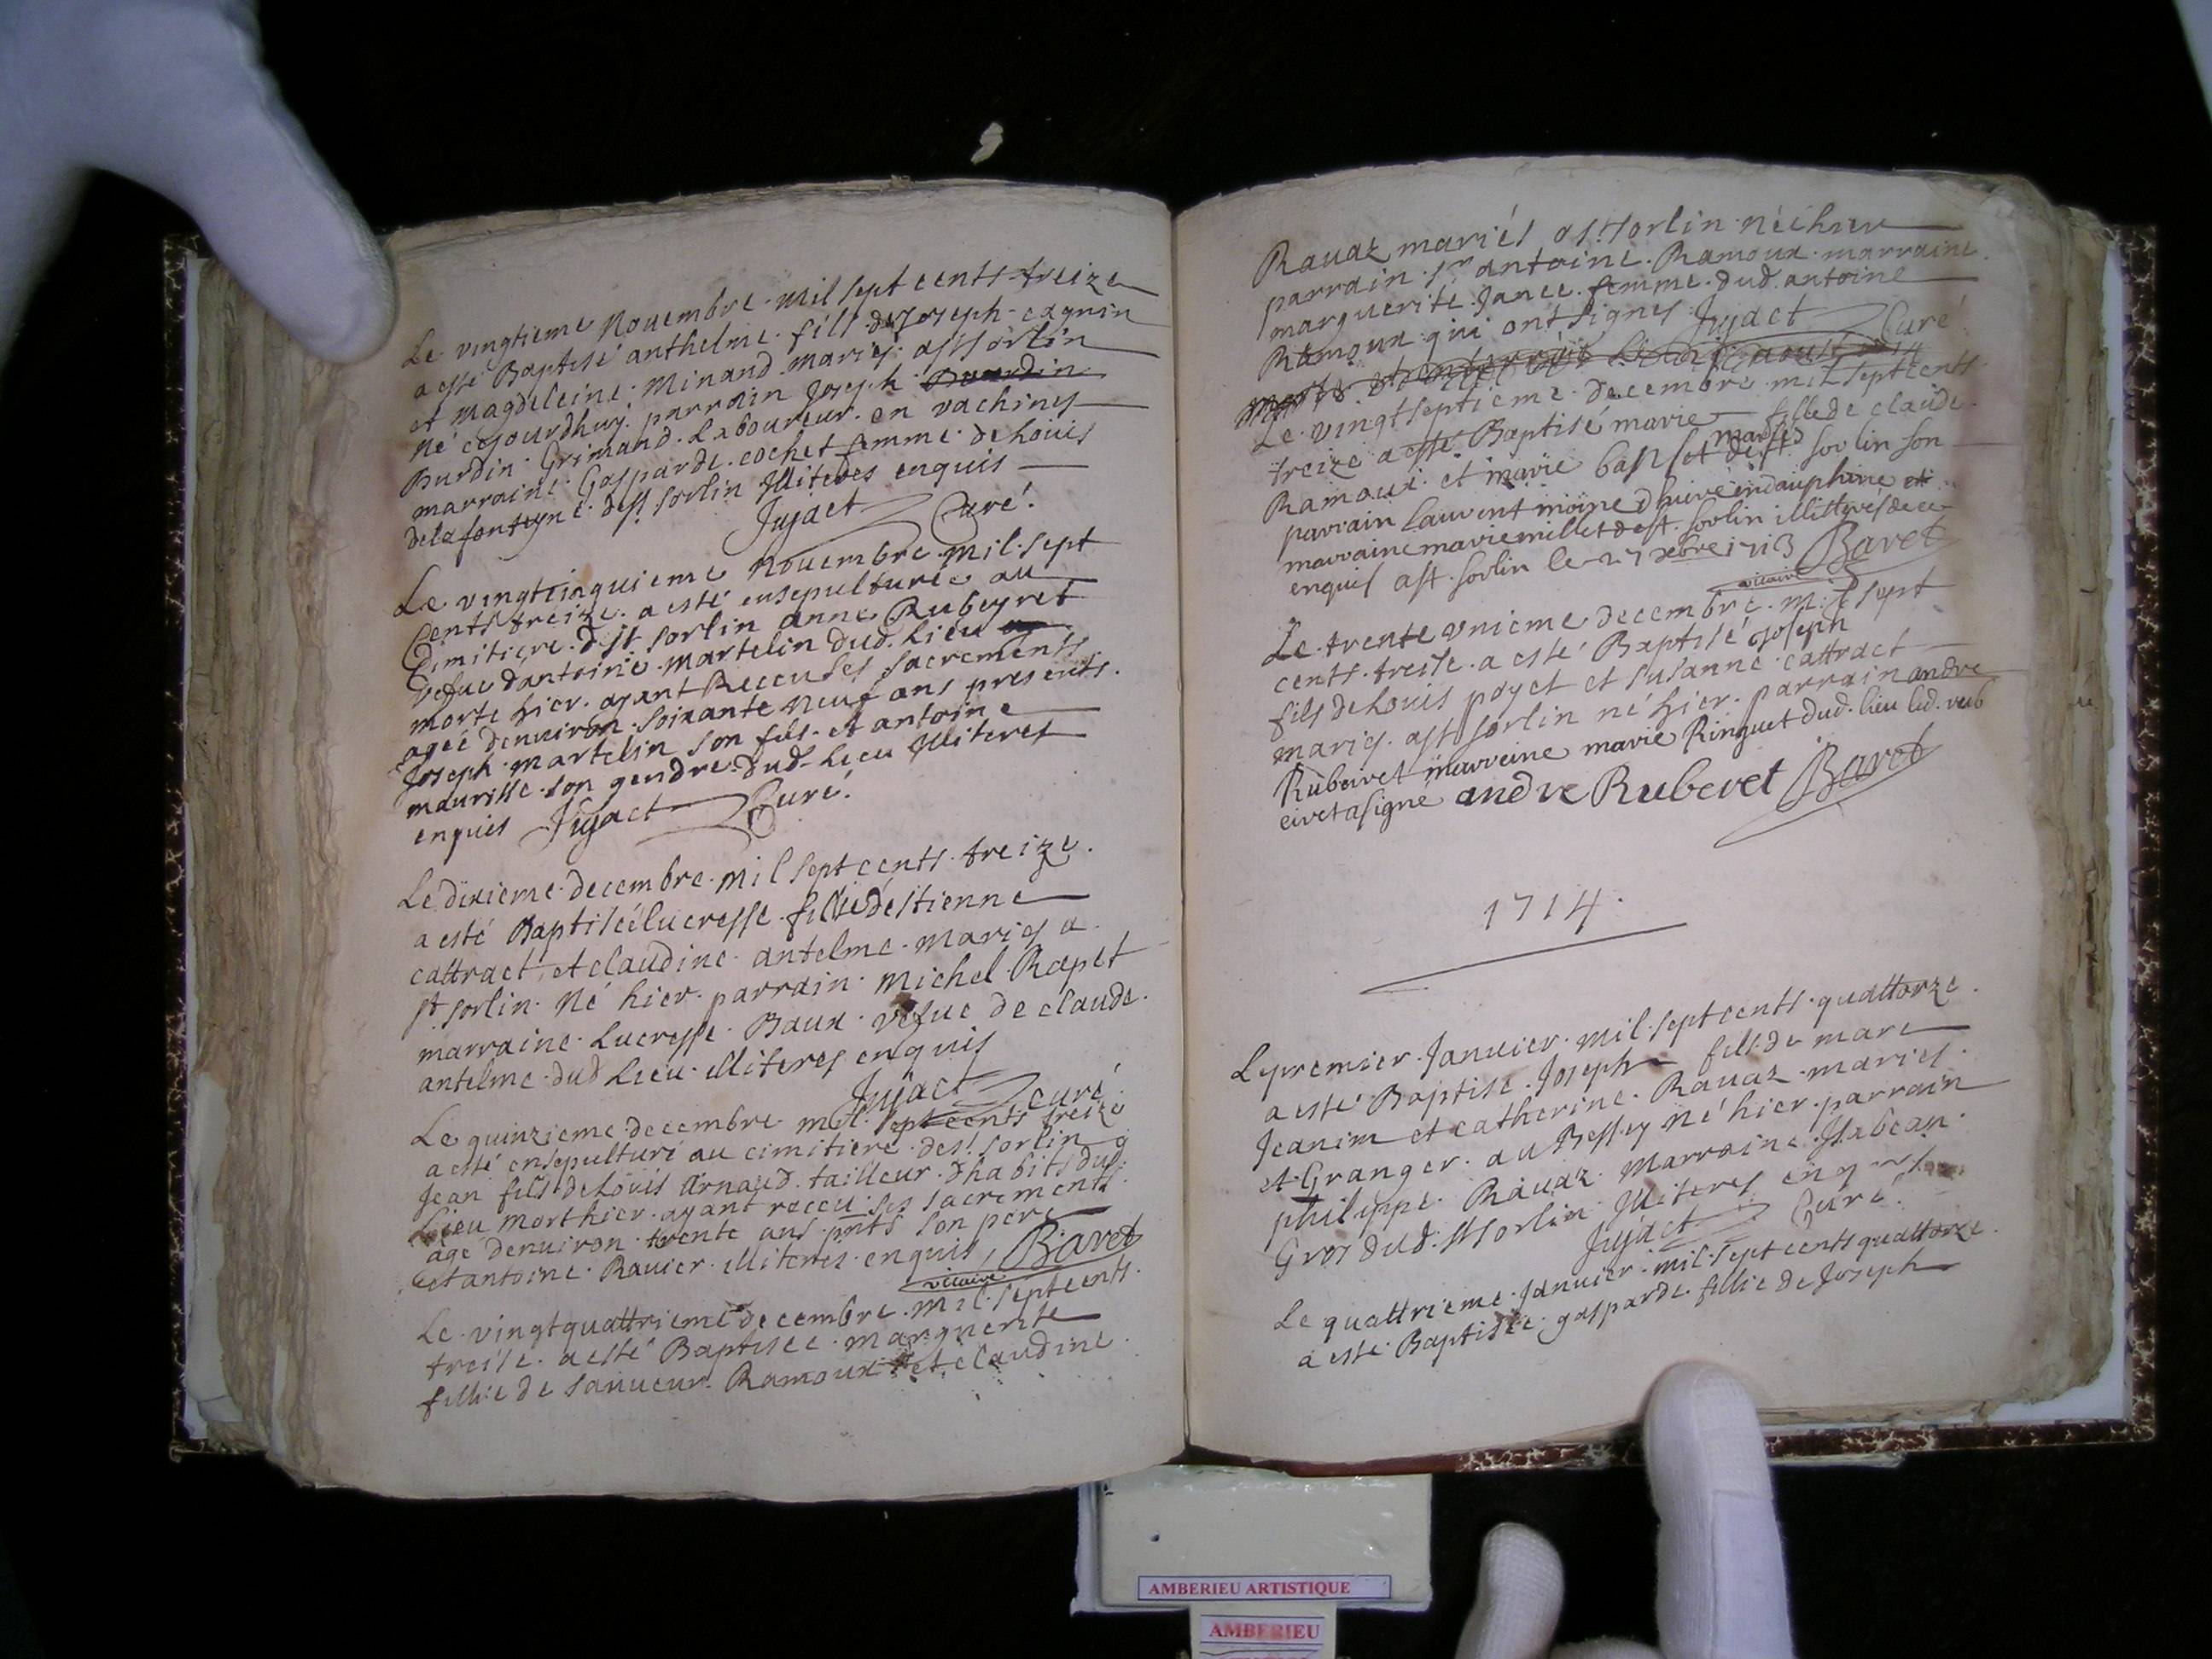 Le vingtieme Novembre mil sept cents treize
a esté Baptisé anthelme fils de Joseph cagnin
et magdeleine Minand mariés a st sorlin
né cejourdhuy parrain Joseph
Burdin Grimand Laboureur en vachines
marraine Gasparde cochet femme de Louis
de la fonteyne de st sorlin illiteres enquis
Jujact Curé
Le vingtcinquieme Novembre mil sept
cents treize a esté ensepulturée au
Cimitiere de st sorlin anne Rubeyret
vefue dantoine martelin dud Lieu
morte hier ayant Receu les sacrements
agée denuiron soixante neuf ans presents
Joseph martelin son fils et antoine
maurisse son gendre dud Lieu illiteres
enquis Jujact Curé
Le dixieme decembre mil sept cents treize
a esté Baptisée lucresse fillie destienne
cattract et claudine antelme mariés a
st sorlin Né hier parrain michel Rapet
marraine Lucresse Baux vefue de claude
antelme dud Lieu illiteres enquis
Jujact curé
Le quinzieme decembre mil sept cents treize
a esté ensepulturé au cimitiere de st sorlin
Jean fils de Louis Arnaud tailleur dhabits dud
Lieu mort hier ayant receu ses sacrements
agé denuiron trente ans pnts son pere
et antoine Rauier illiteres enquis Baret
vicaire
Le vingtquattrieme decembre mil sept cents
treise a esté Baptisée marguerite
fillie de sauueur Ramoux et claudine
Rauaz mariés a st sorlin né hier
parrain sr antoine Ramoux marraine
marguerite Jance femme dud antoine
Ramoux qui ont signes Jujact Curé
Le vingtseptieme decembre mil sept cents
treize a esté Baptisé marie fille de claude
mariés
Ramoux et marie basset de st sorlin son
parrain laurent moine dhuire en dauphine et
marraine marie millet de st sorlin illitterés de ce
enquis a st sorlin le 27 xbre 1713 Baret
vicaire
Le trente vnieme decembre mil sept
cents treise a esté Baptisé Joseph
fils de Louis payet et susanne cattract
mariés a st sorlin né hier parrain andre
Rubeiret marreine marie Ringuet dud lieu led rub
eiret a signé andre Ruberet Baret
1714
Le premier Januier mil sept cents quattorze
a esté Baptise Joseph fils de marc
Jeanin et catherine Rauaz mariés
et Granger au Bessey né hier parrain
philippe Rauaz marraine Isabeau
Gros dud st sorlin illiteres enquis
Jujact Curé
Le quattrieme Januier mil sept cents quattorze
a esté Baptisée gasparde fillie de Joseph
AMBERIEU ARTISTIQUE
AMBERIEU